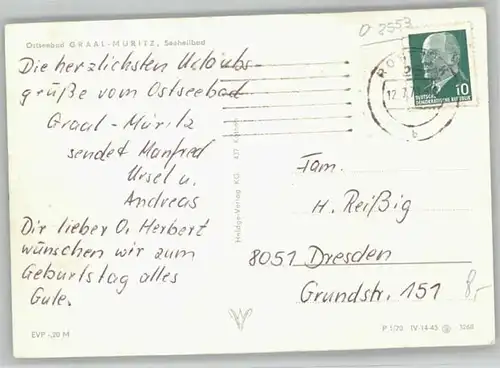 Ostseebad GRAAL-MÜRITZ, Seeheilbad
Die herzlichsten Urlaubs-
grüße vom Ostseebad
Graal-Müritz
sendet Manfred
Ursel u.
Andreas
Dir lieber O. Herbert
wünschen wir zum
Geburtstag alles
Gute.
EVP -,20 M
D 8553
10
DEUTSCHE
DEMOKRATISCHE REPUBLIK
Fam.
H. Reißig
8051 Dresden
Grundstr. 151
8,-
P 1/70 IV-14-45 3268